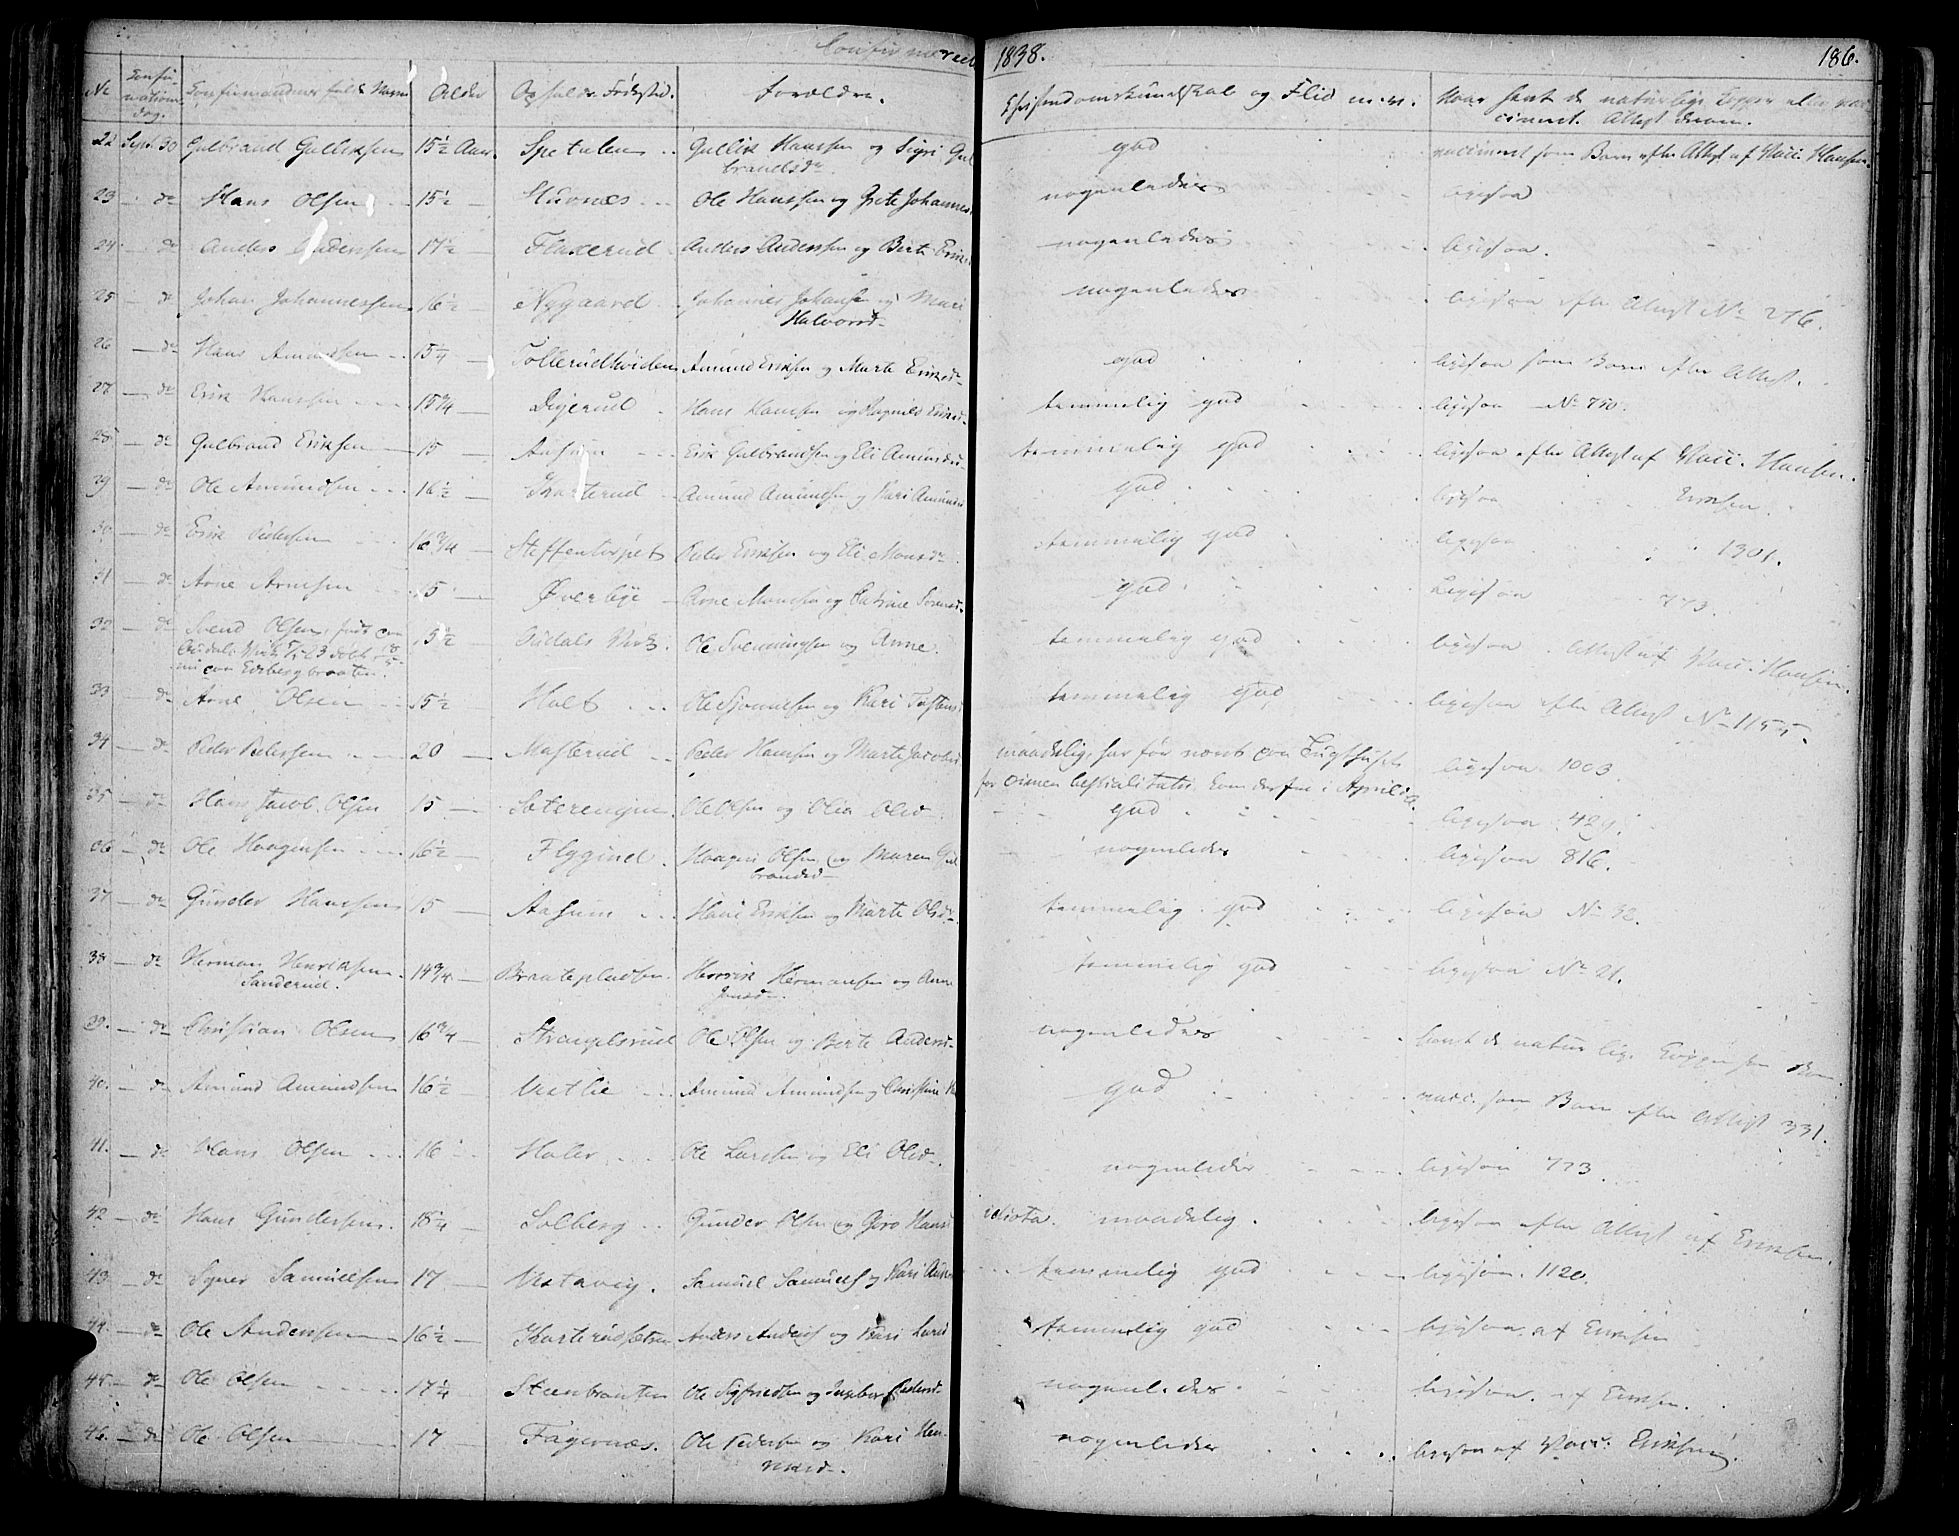 Confirmerede 1838. 186.
No Confirmations Dag. Confirmandens fulde Navn Alder Opholds. Fødested. Forældre. Christendomskundskab og Flid m.v. Hvor havt de naturlige Kopper eller vaccineret. Attest derom.
22 Sept. 30 Gulbrand Gulliksen 15½ Aar. Spetalen Gullik Hanssen og Sigri Gulbrandsdr god vaccineret som Barn efter Attest af Vacc. Hansen.
23 do Hans Olsen 15½ Ole Hanssen og Grete Johannes nogenledes ligesaa
24 do Anders Anderssen 17½ Flaxerud Anders Anderssen og Berte Eriks nogenledes ligesaa.
25 do Johan Johannessen 16½ Nygaard Johannes Johansen og Mari Halvorsd nogenledes ligesaa efter Attest No 276.
26 do Hans Amundsen 15¼ Tollerudhviden Amund Eriksen og Marte Eriksd god ligesaa som Barn efter Attest.
27 do Erik Hanssen 15¾ Digerud Hans Hanssen og Ragnild Eriksd temmelig god ligesaa No 750.
28 do Gulbrand Eriksen 15 Aasum Erik Gulbrandsen og Eli Amundsd temmelig god ligesaa efter Attest af Vacc. Hansen.
29 do Ole Amundsen 16½ Karterud Amund Amundsen og Kari Amunds god ligesaa Eriksen.
30 do Erik Pedersen 16¾ Steffentorpet Peder Eriksen og Eli Monsdr temmelig god ligesaa 1301.
31 do Arne Arnesen 15 Øverbye Arne Monsen og Catrine Sorensd god ligesaa 773.
32 do Svend Olsen, født paa Odals Værk døbt nu paa Edsbergbraaten. 15½ Odals Værk Ole Svenningsen og Anne. temmelig god ligesaa Attest af Vacc. Hansen.
33 do Arne Olsen 15½ Holt Ole og Kari temmelig god ligesaa efter Attest No 1155.
34 do Peder Pedersen 20 Masterud Peder Hanssen og Marte Jacobsd maadelig, har før været paa Tugthuset for crimen bestialitatis. Kom derfra i April d.A. ligesaa 1003.
35 do Hans Jacob Olsen 15 Seterengen Ole Olsen og Olea Olsd god ligesaa 429.
36 do Ole Haagensen 16½ Flygind Haagen Olsen og Maren Gulbrandsd nogenledes ligesaa 816.
37 do Gunder Hanssen 15 Aasum Hans Eriksen og Marte Olsd temmelig god ligesaa No 32.
38 do Herman Henriksen Sanderud. 14¾ Braatepladsen Henrik Hermansen og Anne Jensd temmelig god ligesaa No 21.
39. do Christian Olsen 16¾ Strengelsrud Ole Olsen og Berte Andersd nogenledes havt de naturlige Kopper som Barn.
40. do Amund Amundsen 16½ Vestlie Amund Amundsen og Christine god vacc. som Barn efter Attest 331.
41. do Hans Olsen 16 Holer Ole Larssen og Eli Olsd. nogenledes ligesaa 773
42 do Hans Gundersen 18¼ Solberg Gunder Olsen og Giro Hans idiota. maadelig. ligesaa efter Attest af Eriksen.
43. do Syver Samuelsen 17 Vestavig. Samuel Samuels og Kari temmelig god ligesaa. 1120.
44. do Ole Anderssen 16½ Karterudsetren Anders Anders og Kari Larsd temmelig god ligesaa. af Eriksen
45. do Ole Olsen 17¼ Steenbraaten Ole Sigfridsen og Ingebor Pedersd nogenledes ligesaa. af Eriksen.
46. do Ole Olsen 17 Fagernæs. Ole Pedersen og Kari Henriksd. nogenledes ligesaa af Vacc. Eriksen.